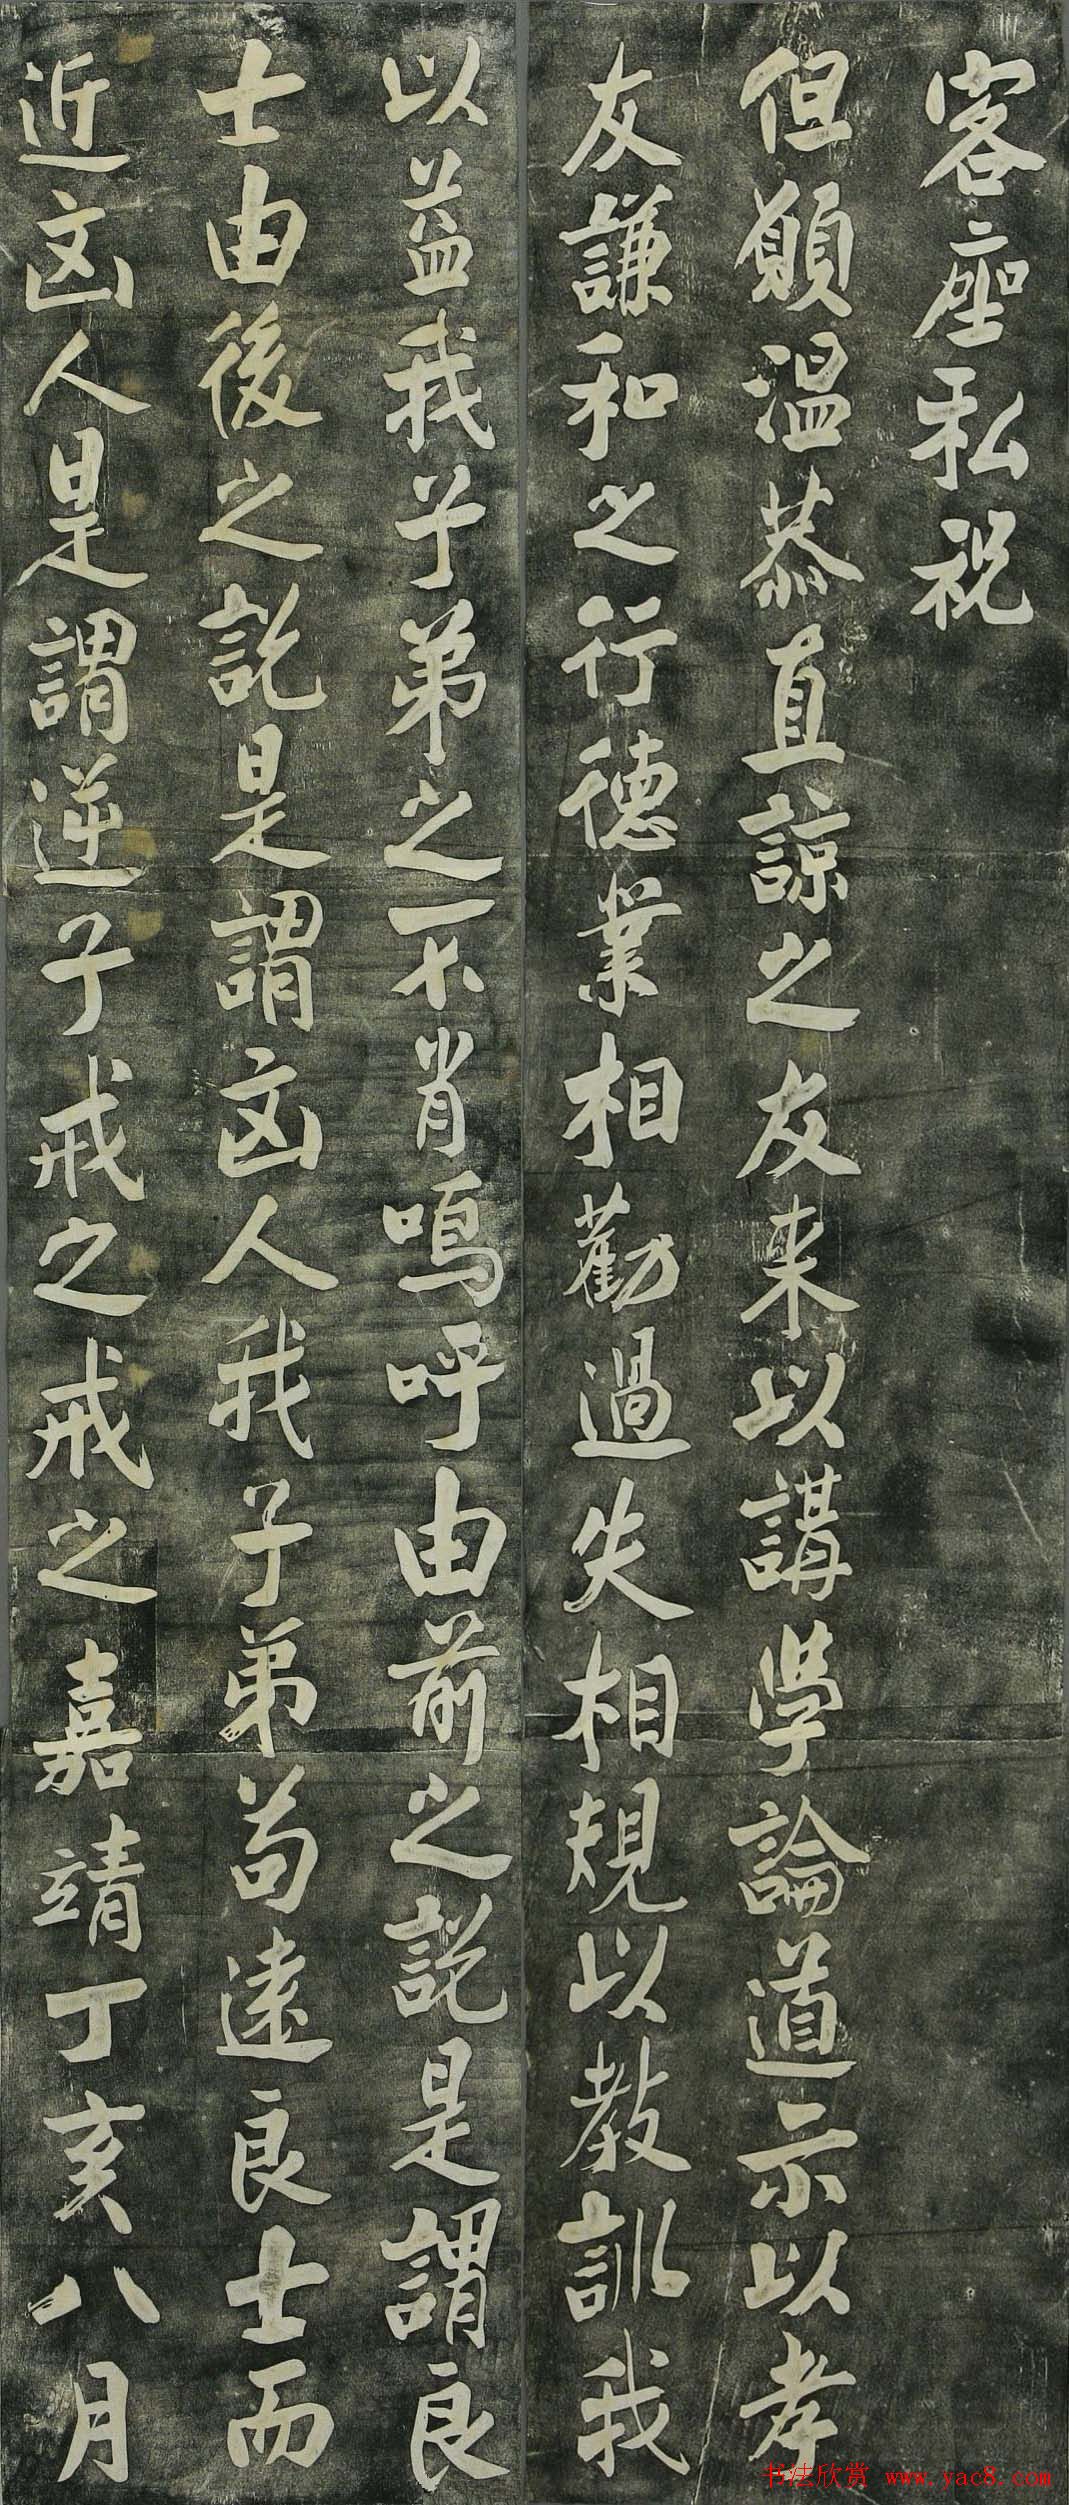 客座私祝
但願溫恭直諒之友来以講學論道示以孝
友謙和之行德業相勸過失相規以教訓我
以益我子弟之不肖鳴呼由前之説是謂良
士由後之説是謂凶人我子弟苟遠良士而
近凶人是謂逆子戒之戒之嘉靖丁亥八月
书法欣赏 www.yac8.com